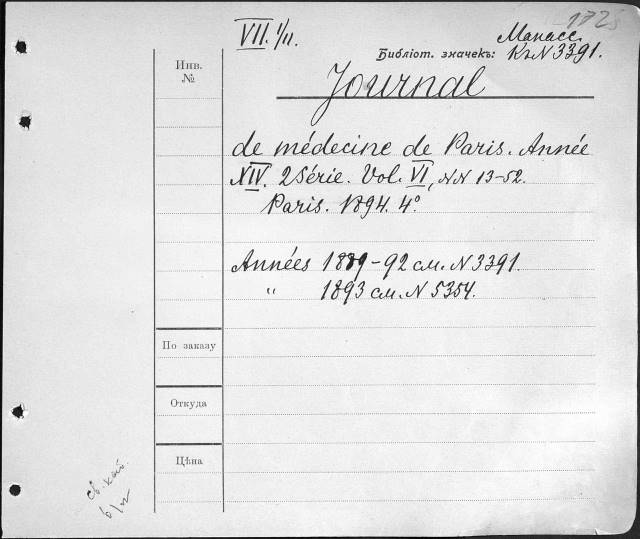 VII. 1/11.
Манасс.
Библіот. значекъ: Къ N 3391.
Инв.
№
Journal
de médecine de Paris. Année
XIV. 2 Série. Vol. VI, NN 13-52.
Paris. 1894. 4°.
Années 1889-92 см. N 3391.
" 1893 см. N 5354.
По заказу
Откуда
Цѣна